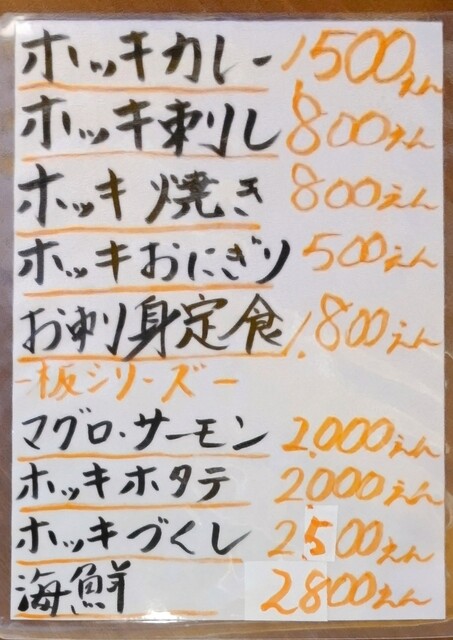 ホッキカレー 1500えん
ホッキ刺し 800えん
ホッキ焼き 800えん
ホッキおにぎり 500えん
お刺身定食 1.800えん
ー板シリーズー
マグロ・サーモン 2.000えん
ホッキホタテ 2000えん
ホッキづくし 2500えん
海鮮 2800えん